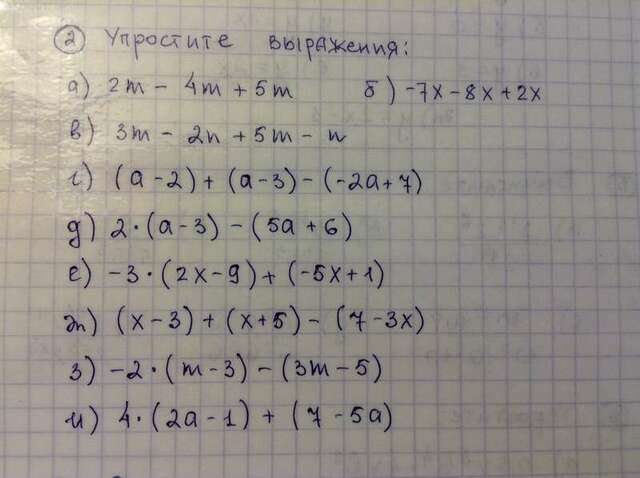 2 Упростите выражения:
а) 2m - 4m + 5m б) -7x - 8x + 2x
в) 3m - 2n + 5m - n
г) (a - 2) + (a - 3) - (-2a + 7)
д) 2 · (a - 3) - (5a + 6)
е) -3 · (2x - 9) + (-5x + 1)
ж) (x - 3) + (x + 5) - (7 - 3x)
з) -2 · (m - 3) - (3m - 5)
и) 4 · (2a - 1) + (7 - 5a)